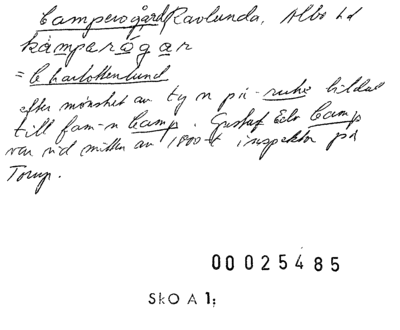 Camperogård Ravlunda, Albo hd
kampɘrōgar
= Charlottenlund
efter mönstret av ty n på -ruhe bildat
till fam-n Camp. Gustaf Edv Camp
var vid mitten av 1800-t inspektor på
Torup.
00025485
SkO A 1: